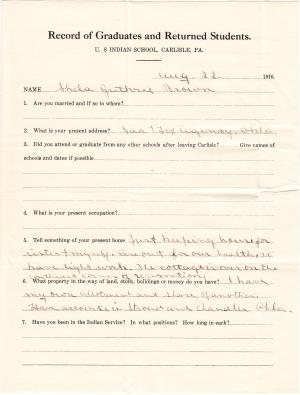 Record of Graduates and Returned Students.
U. S INDIAN SCHOOL, CARLISLE, PA.
Aug. 22 1910.
NAME Shela Guthrie Brown
1. Are you married and if so to whom?
2. What is your present address? Sac & Fox Agency, Okla
3. Did you attend or graduate from any other schools after leaving Carlisle? Give names of
schools and dates if possible
4. What is your present occupation?
5. Tell something of your present home Just keeping house for
sister & myself, are out for our health &
have light work. The cottage is over on the
northeast corner of reservation.
6. What property in the way of land, stock, buildings or money do you have? I have
my own allotment and share of another.
Have accounts in Stroud and Chandler Okla.
7. Have you been in the Indian Service? In what positions? How long in each?